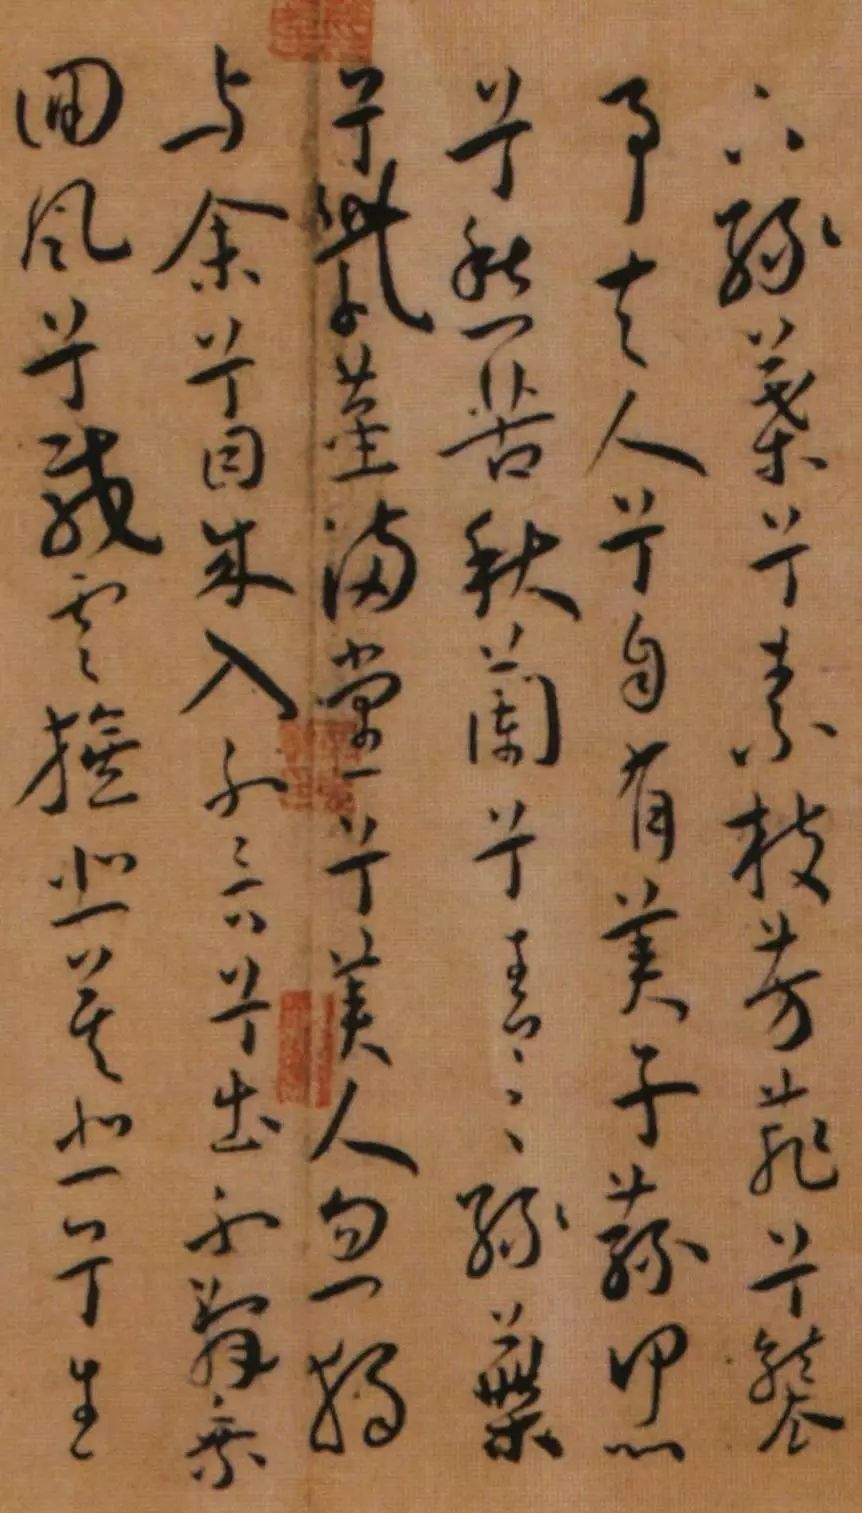 下綠葉兮素枝芳菲兮襲
予夫人兮自有美子蓀何以
兮愁苦秋蘭兮青〻綠葉
兮紫莖滿堂兮美人忽獨
与余兮目成入不言兮出不辭乘
回風兮載雲旗悲莫悲兮生